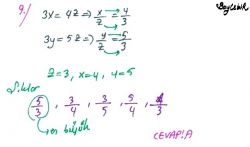 9.) 3x = 4z ⇒ x/z = 4/3
3y = 5z ⇒ y/z = 5/3
z=3, x=4, y=5
Şıklar
5/3, 3/4, 3/5, 5/4,
↳ en büyük
CEVAP: A